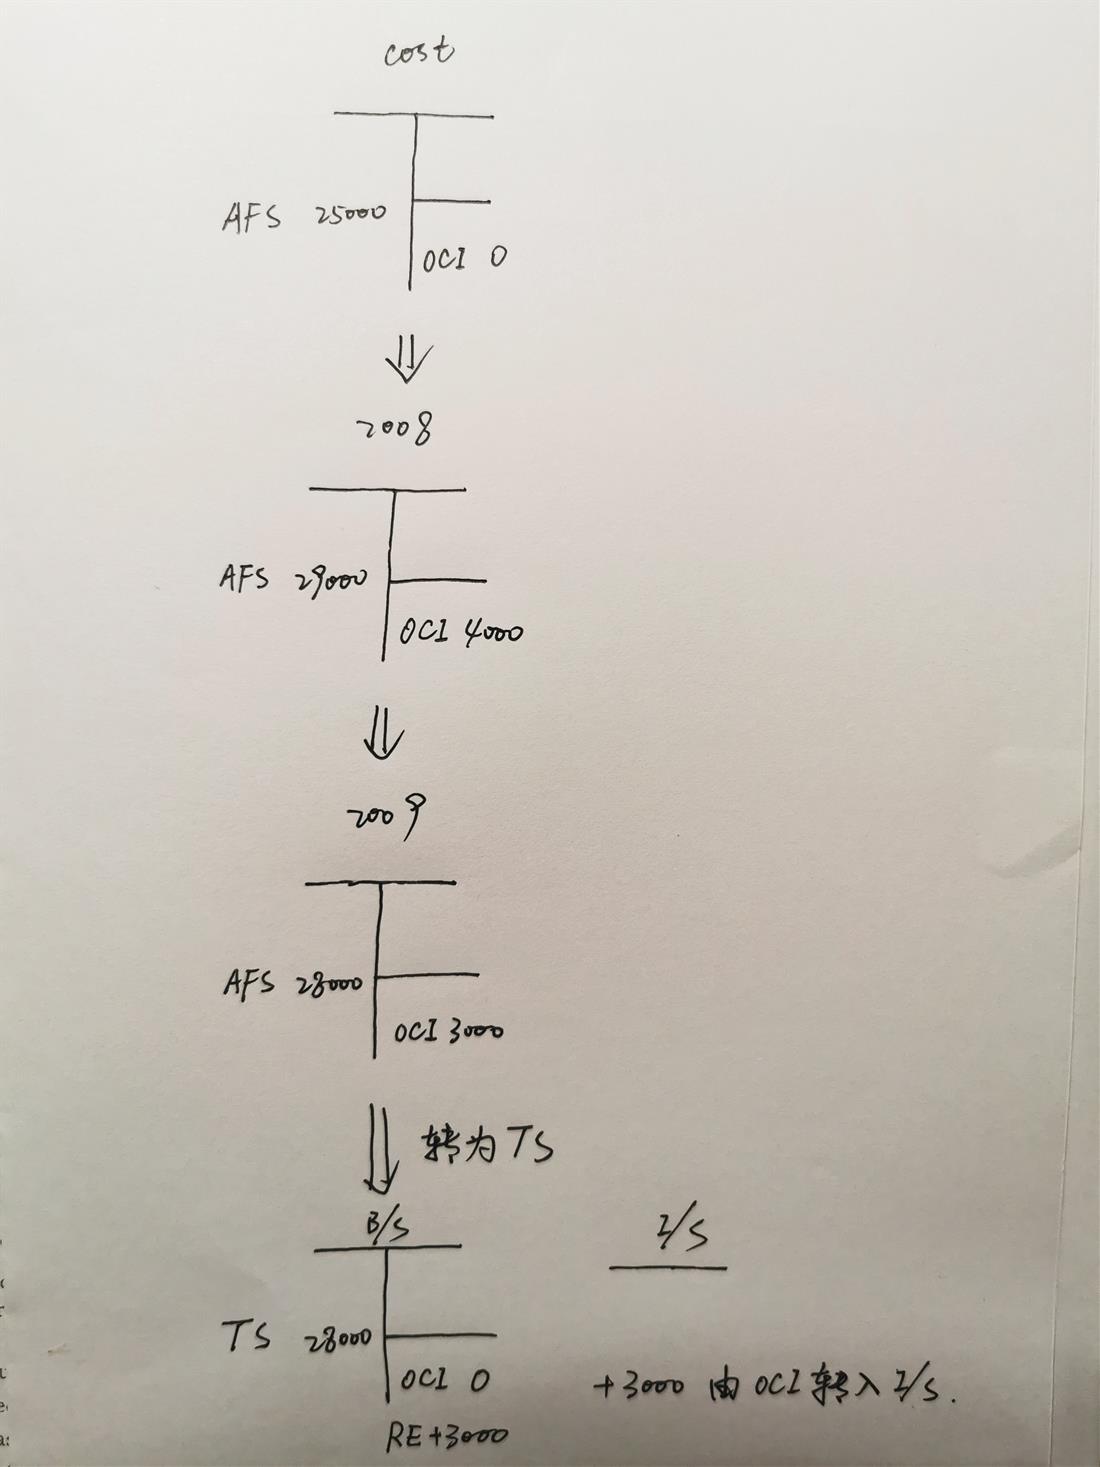 cost
AFS 25000
OCI 0
2008
AFS 29000
OCI 4000
2009
AFS 28000
OCI 3000
转为TS
B/S
I/S
TS 28000
OCI 0
+3000 由OCI转入I/S.
RE+3000